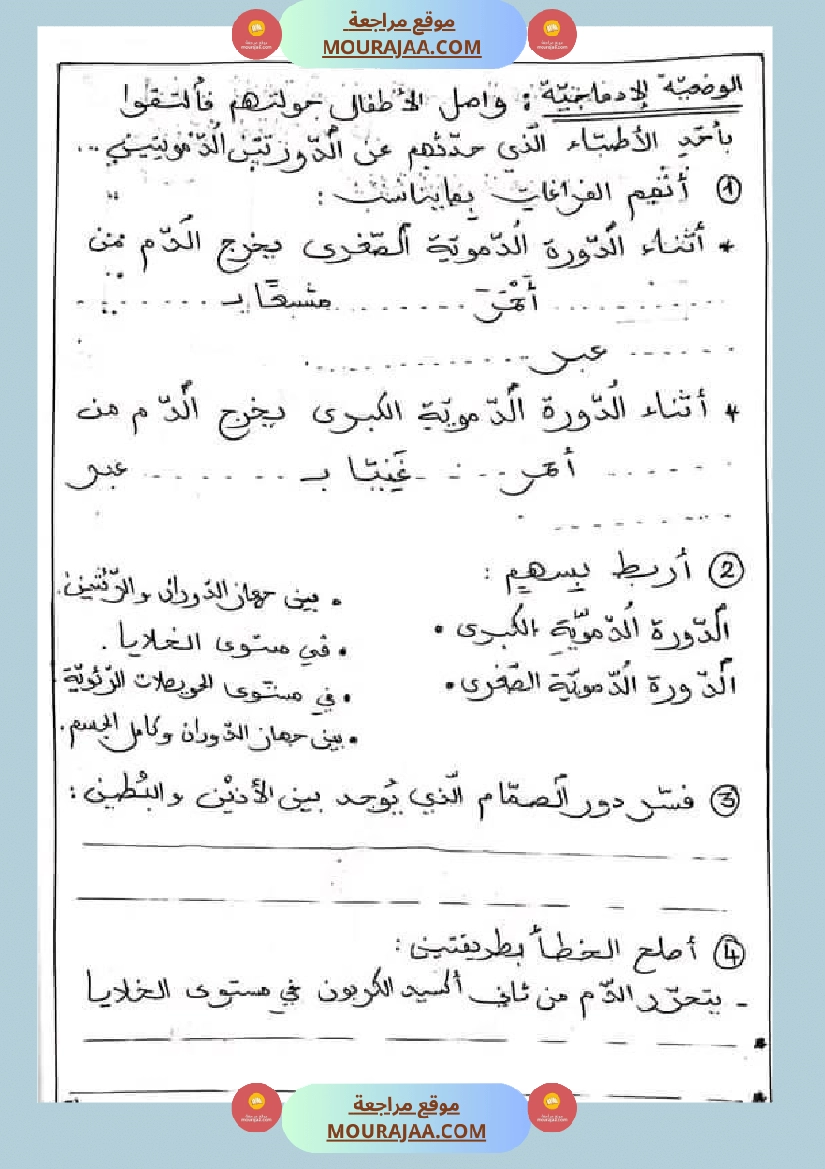 موقع مراجعة
MOURAJAA.COM
الوضعيّة الإدماجيّة : واصل الأطفال جولتهم فالتقوا
بأحد الأطبّاء الّذي حدّثهم عن الدّورتين الدّمويتين ...
① أتمّم الفراغات بما يناسب :
* أثناء الدّورة الدّمويّة الصّغرى يخرج الدّم من
........ أحمر ........ مشبعًا بـ ........
...... عبر ............
* أثناء الدّورة الدّمويّة الكبرى يخرج الدّم من
........ أحمر ..... غَنِيًّا بـ ........ عبر
........
② أربط بسهم :
الدّورة الدّمويّة الكبرى •
الدّورة الدّمويّة الصّغرى •
• بين جهاز الدّوران والرّئتين.
• في مستوى الخلايا.
• في مستوى الحويصلات الرّئويّة.
• بين جهاز الدّوران وكامل الجسم.
③ فسّر دور الصمّام الّذي يُوجد بين الأذين والبُطين :
④ أصلح الخطأ بطريقتين :
- يتحرّر الدّم من ثاني أكسيد الكربون في مستوى الخلايا
*
*
موقع مراجعة
MOURAJAA.COM